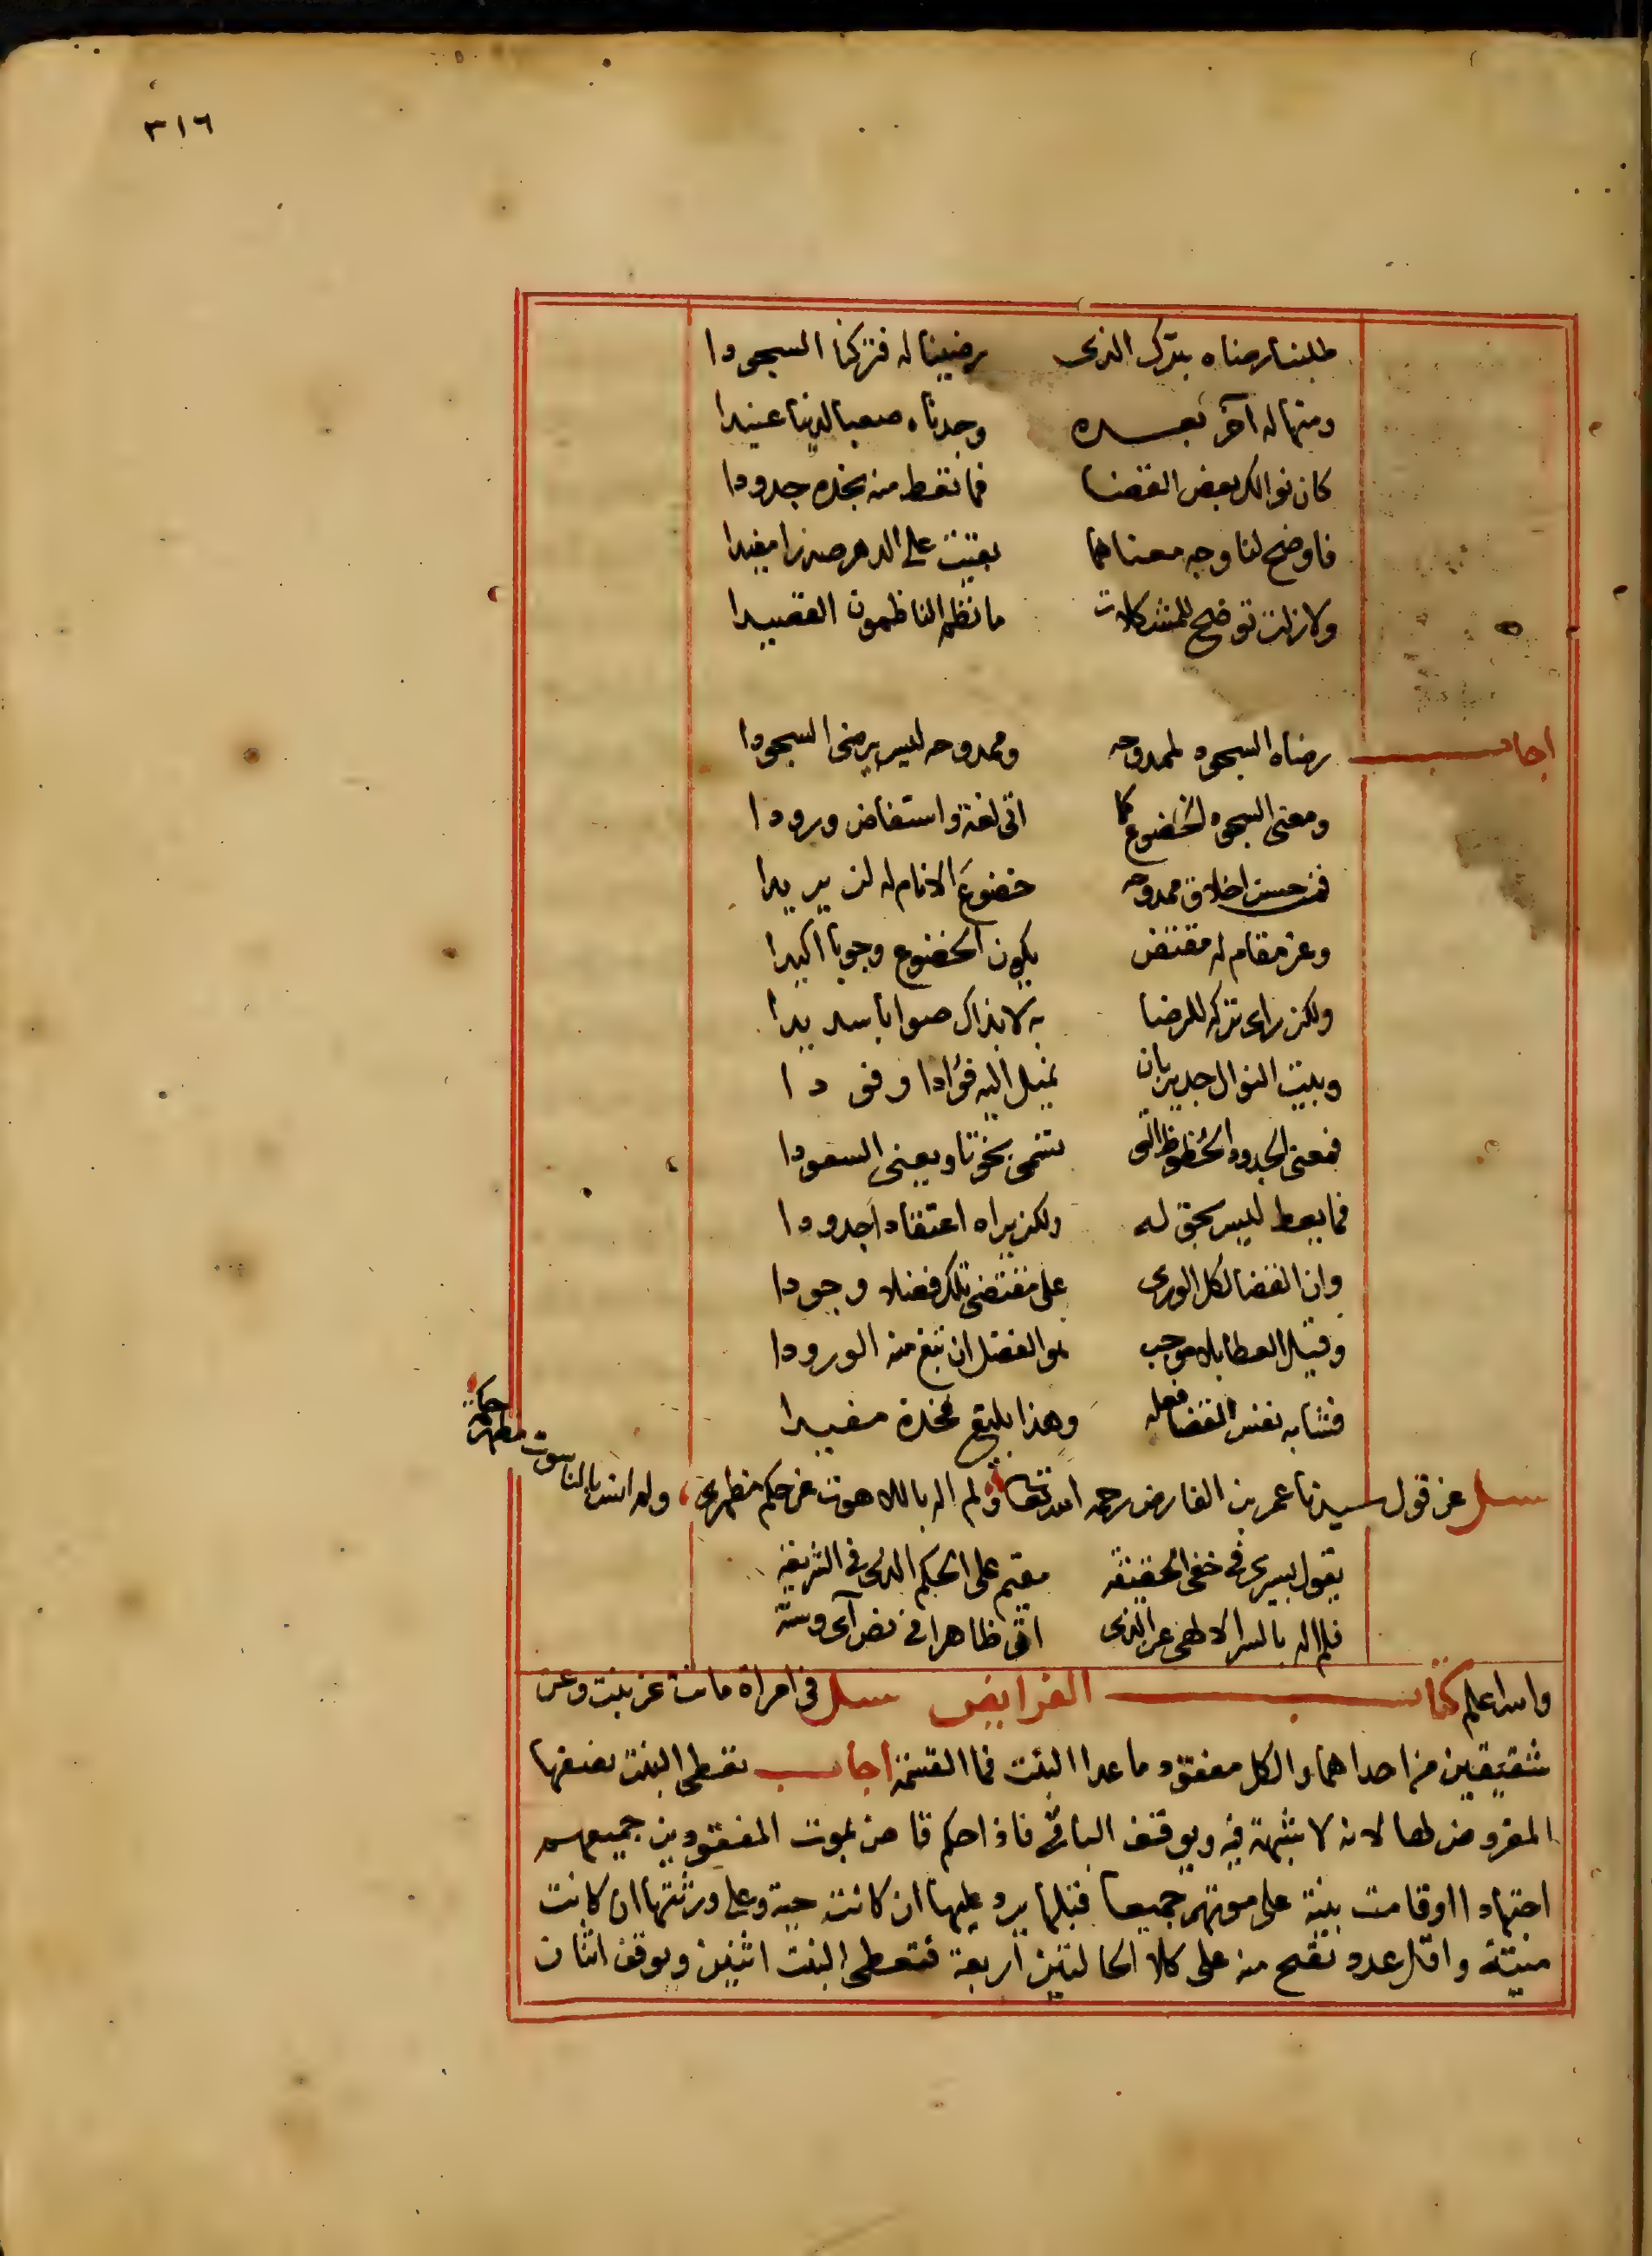 ٣١٦
طلبنا رضاه بترك الذى رضينا له فتركنا السجودا
ومنها له آخر بعده وجدناه صعبا لدينا عنيدا
كان نوالك بعض القضا فما تعط منه نجده جدودا
فاوضح لنا وجه معناهما بقيت على الدهر صدرا مفيدا
ولا زلت توضح للمشكلات ما نظم الناظمون القصيدا
اجاب رضاه السجود لممدوحه وممدوحه ليس يرضى السجودا
ومعنى السجود الخضوع كما اتى لغة واستفاض ورودا
فمن حسن اخلاق ممدوحه خضوع الانام له لن يريدا
وعز مقام له مقتض يكون الخضوع وجوبا اكيدا
ولكن راى تركه للرضا به لا بذاك صوابا سديدا
وبيت النوال جدير بان تميل اليه فؤادا وفودا
فمعنى الجدود الحظوظ التى تسمى بخوتا ويعنى السعودا
فما يعط ليس بحق له ولكن يراه اعتقادا جدودا
وان القضا لكل الورى على مقتضى تلك فضلا وجودا
وقيل العطا بلا موجب هو الفضل ان تبغ منه الورودا
فشابه نفس القضا فعله وهذا بليغ فخذه مفيدا
سئل عن قول سيدنا عمر بن الفارض رحمه الله تعالى ولم اله باللاهوت عن حكم مظهرى ولم انس بالناسوت مظهر حكمة
يقول بسرى فى خفى الحقيقة مقيم على الحكم الذى فى الشريعة
فلم اله بالسر الالهى عن الذى اتى ظاهرا فى نص آى وسنة
والله اعلم كتاب الفرايض سئل فى امراة ماتت عن بنت وعن
شقيقين من احداهما والكل مفقود ما عدا البنت فما القسمة اجاب تعطى البنت نصفها
المفروض لها لانه لا شبهة فيه ويوقف الباقى فاذا حكم قاض بموت المفقودين جميعهم
اجتهادا او قامت بينة على موتهم جميعا قبلها يرد عليها ان كانت حية وعلى ورثتها ان كانت
ميتة واقل عدد تصح منه على كلا الحالتين اربعة فتعطى البنت اثنين ويوقف اثنان